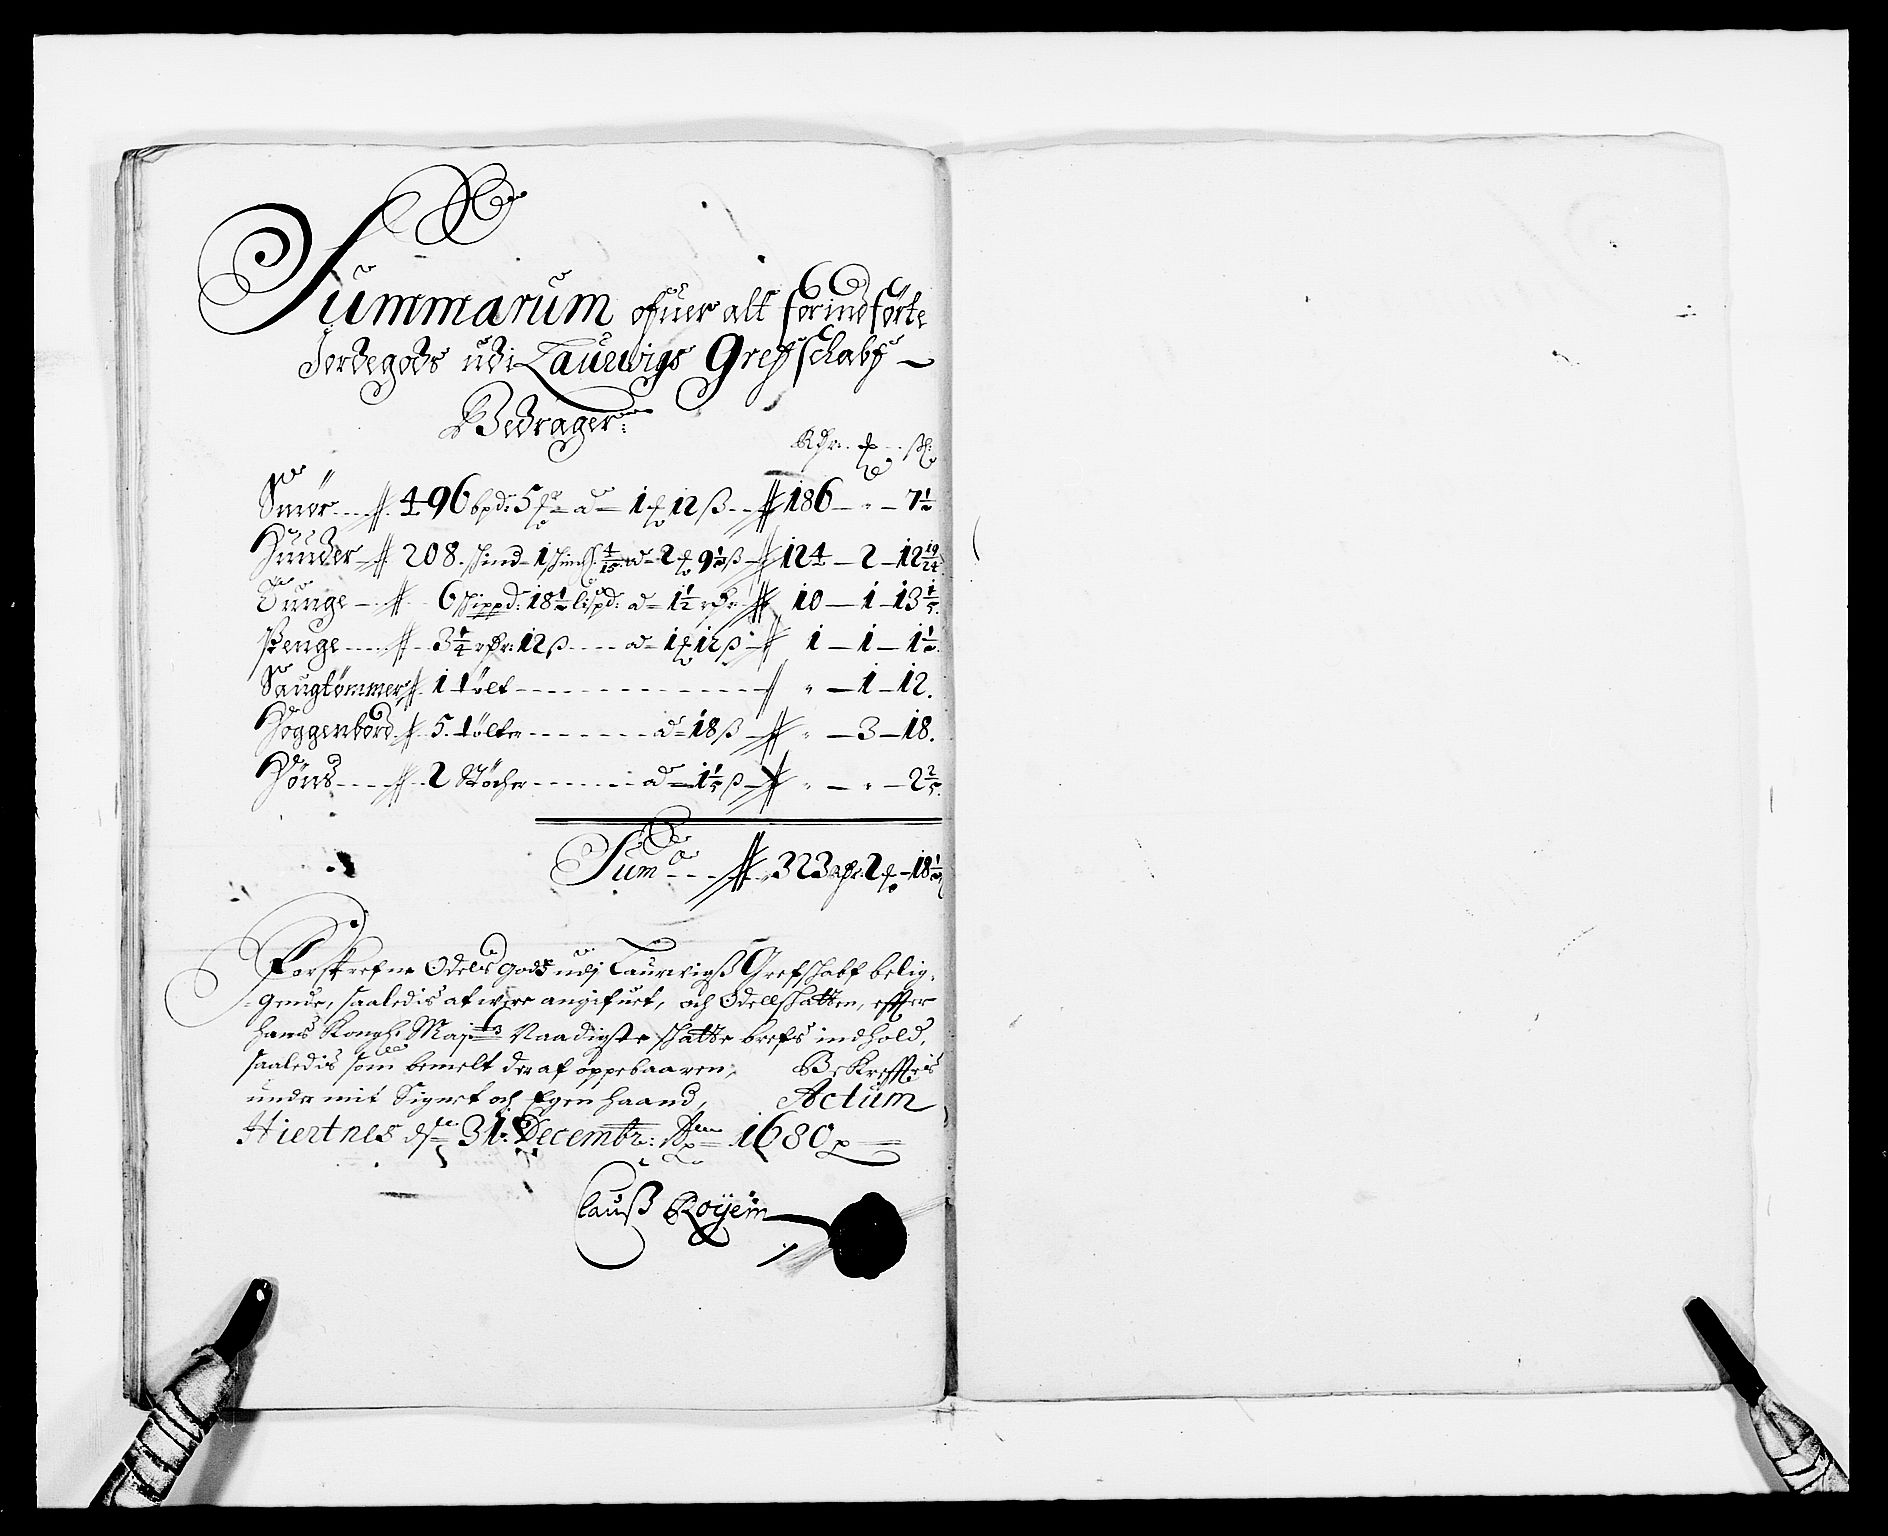 Summarum ofuer alt forindførte
Jordegods udi Laurwigs Grefschabs
Bedrager:
Rdr. ß
Smør 496 bpd: 5 a 1 12 ß 186 — " — 7½
Hunder 208 hund 1 4/15 a 2 9½ ß 124 — 2 — 12 19/24
Tunge 6 schippd: 18½ lispd: a 1½ rdr 10 — 1 — 13 1/5
Penge 3¼ rdr: 12 ß a 1 12 ß 1 — 1 — 1½
Saugtømmer 1 tölt " — 1 — 12.
Hoggenbord 5 tölter a 18 ß " — 3 — 18.
Höns 2 Stöcher a 1 1/5 ß " — " — 2 2/5
Suma 323 rdr 2 18½
Forskrefne Odels gods udj Laurwigß Grefschabs belig-
gende, saaledis at were angifuet, och Odellskatten, effter
hans Kongl: Majts Naadigste skatte brefs indhold,
saaledis som bemelt der af oppebaaren, Bekreffteis
under mit Signet och Egen haand, Actum
Hiertnes d 31 Decembr: A 1680
Clauß Röyem